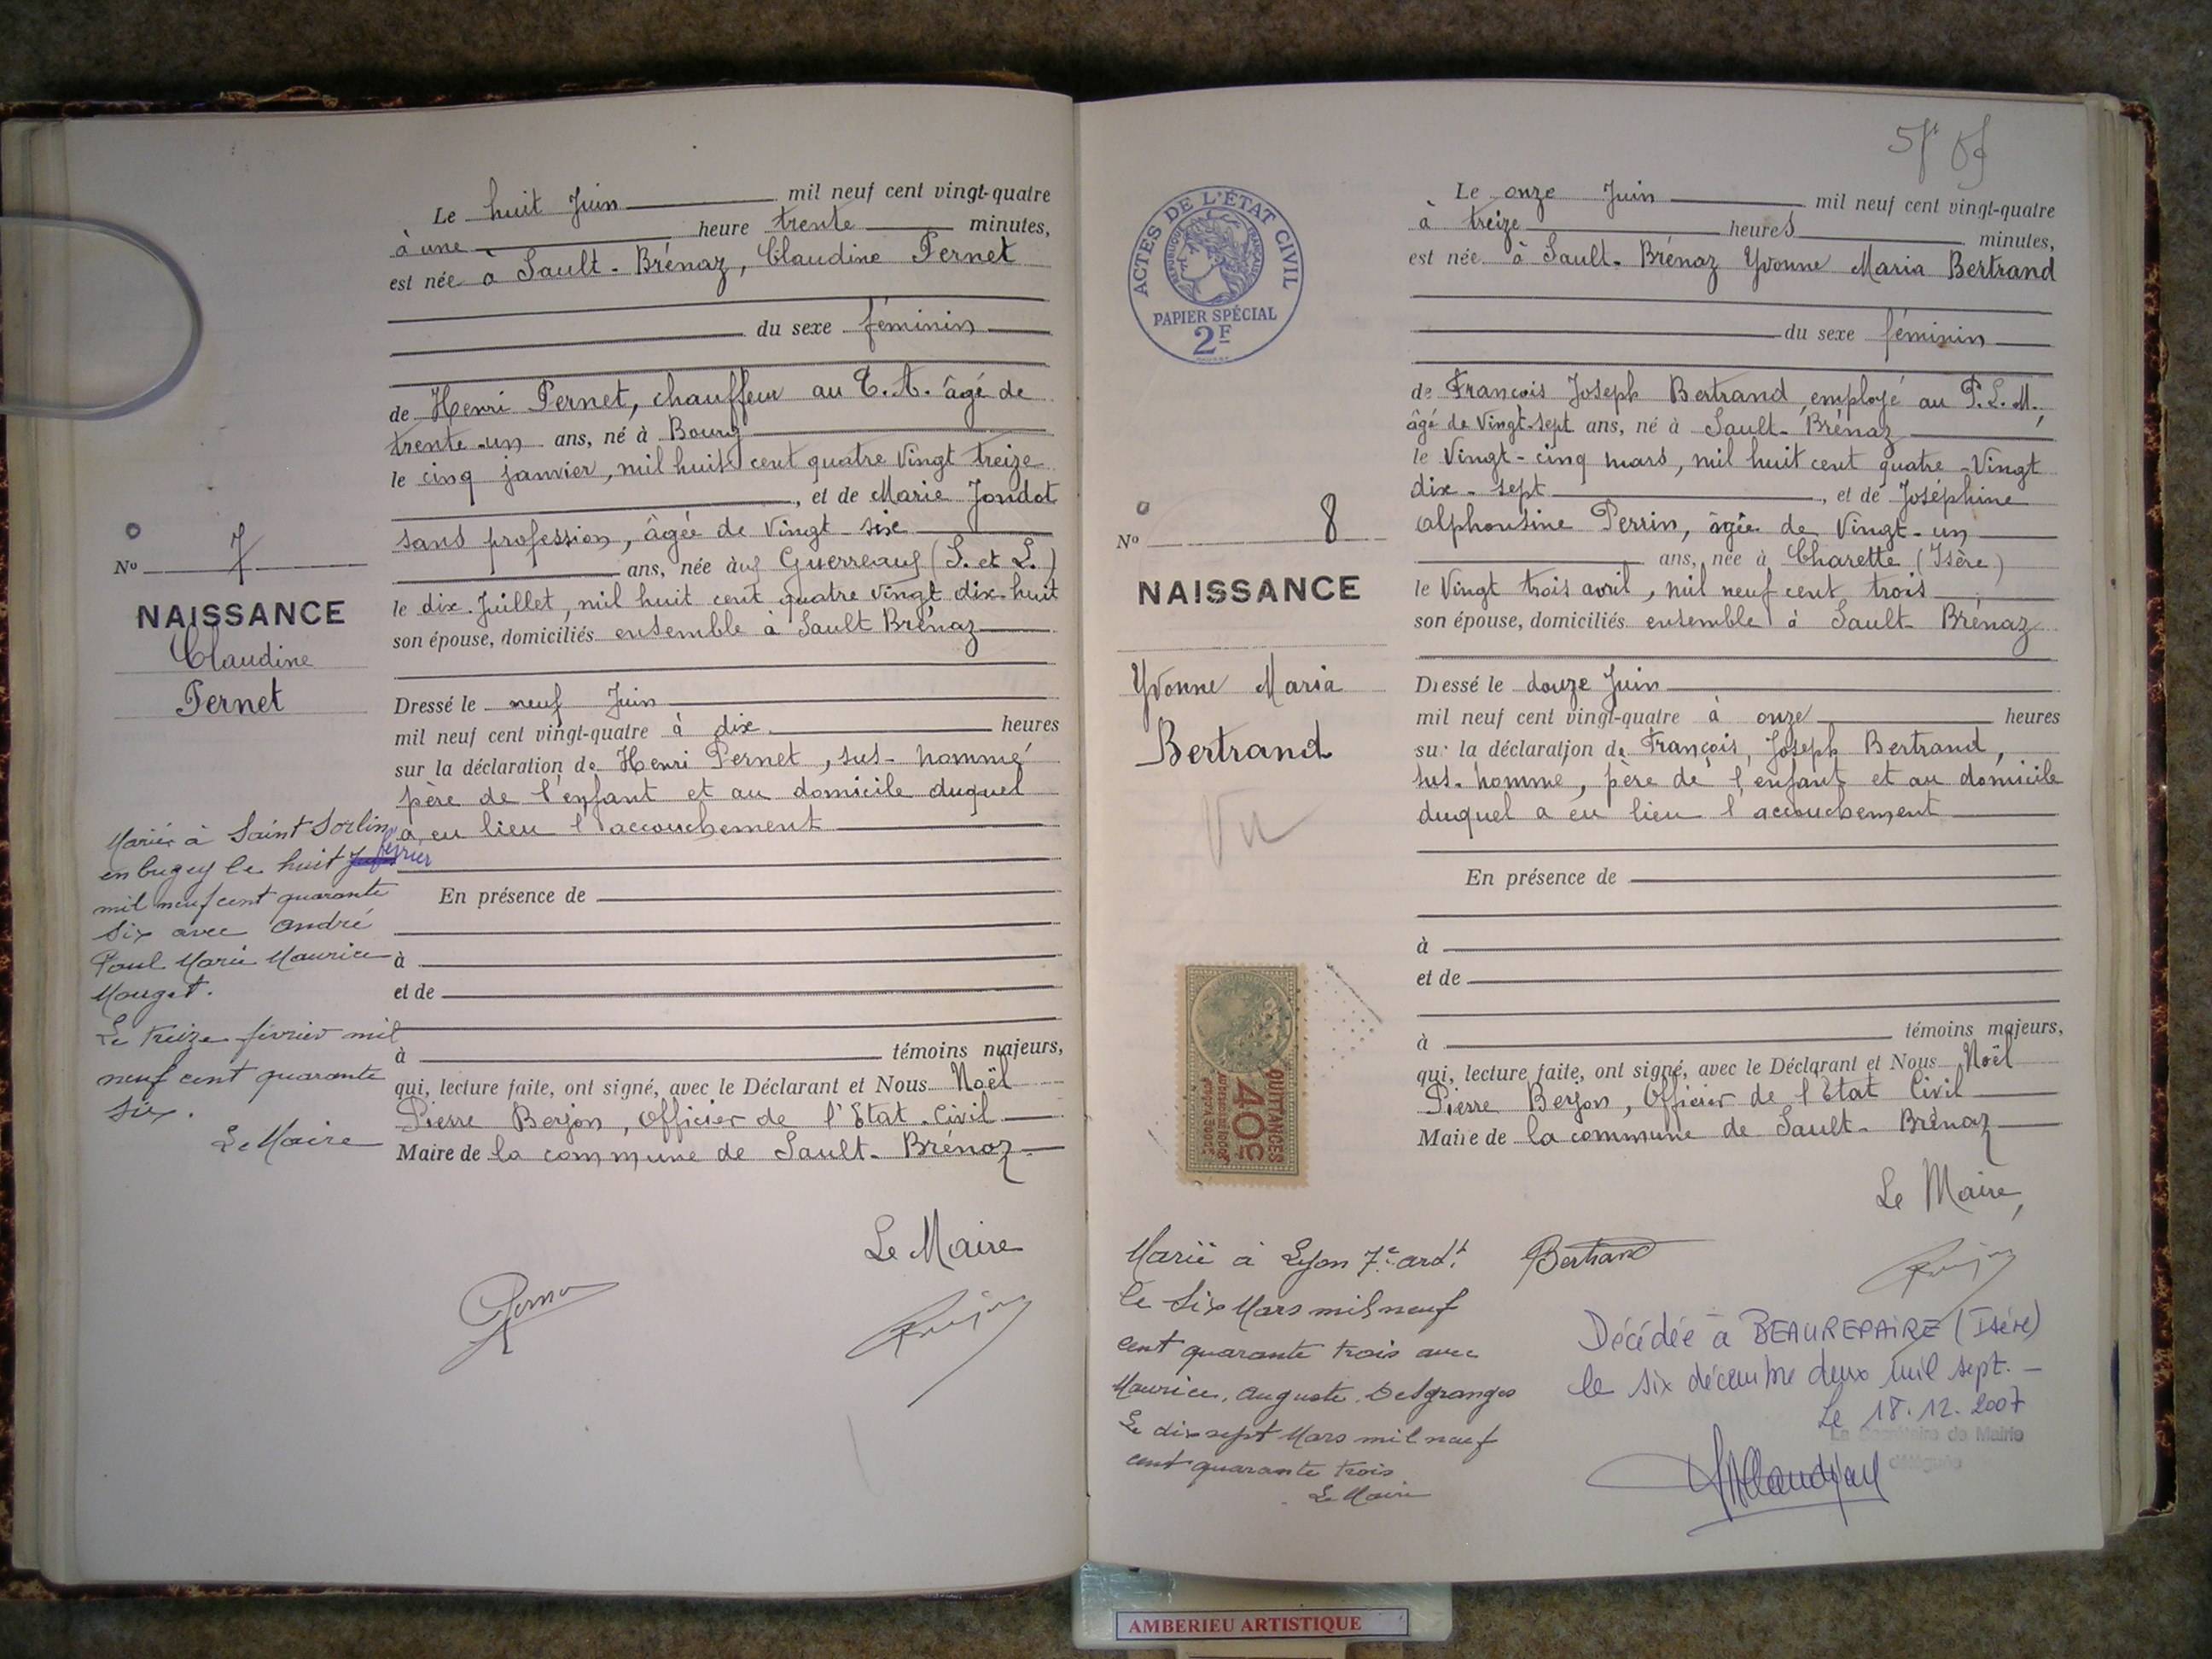 Le huit Juin mil neuf cent vingt-quatre
à une heure trente minutes,
est née à Sault-Brénaz, Claudine Pernet
du sexe féminin
de Henri Pernet, chauffeur au T.A. âgé de
trente-un ans, né à Bourg
le cinq janvier, mil huit cent quatre Vingt treize
, et de Marie Joudot
sans profession, âgée de Vingt-six
ans, née aux Guerreaux (S. et L.)
le dix Juillet, mil huit cent quatre vingt dix-huit
son épouse, domiciliés ensemble à Sault Brénaz
Nº 7
NAISSANCE
Claudine
Pernet
Dressé le neuf Juin
mil neuf cent vingt-quatre à dix heures
sur la déclaration de Henri Pernet, sus-nommé
père de l'enfant et au domicile duquel
a eu lieu l'accouchement
En présence de
à
et de
à témoins majeurs,
qui, lecture faite, ont signé, avec le Déclarant et Nous Noël
Pierre Berjon, Officier de l'Etat-Civil
Maire de la commune de Sault-Brénaz
Mariée à Saint Sorlin
en bugey le huit février
mil neuf cent quarante
six avec André
Paul Marie Maurice
Mouget.
Le treize février mil
neuf cent quarante
six.
Le Maire
Le Maire
ACTES DE L'ÉTAT CIVIL
RÉPUBLIQUE FRANÇAISE
PAPIER SPÉCIAL
2F
Le onze Juin mil neuf cent vingt-quatre
à treize heures minutes,
est née à Sault-Brénaz Yvonne Maria Bertrand
du sexe féminin
de François Joseph Bertrand, employé au P.L.M.,
âgé de Vingt-sept ans, né à Sault-Brénaz
le Vingt-cinq mars, mil huit cent quatre-Vingt
dix-sept, et de Joséphine
Alphonsine Perrin, âgée de Vingt-un
ans, née à Charette (Isère)
le Vingt trois avril, mil neuf cent trois
son épouse, domiciliés ensemble à Sault-Brénaz
Nº 8
NAISSANCE
Yvonne Maria
Bertrand
Vu
Dressé le douze Juin
mil neuf cent vingt-quatre à onze heures
sur la déclaration de François, Joseph Bertrand,
sus-nommé, père de l'enfant et au domicile
duquel a eu lieu l'accouchement
En présence de
à
et de
à témoins majeurs,
qui, lecture faite, ont signé, avec le Déclarant et Nous Noël
Pierre Berjon, Officier de l'Etat Civil
Maire de la commune de Sault-Brénaz
QUITTANCES
40c
Le Maire,
Bertrand
Mariée à Lyon 7e ardt
le six Mars mil neuf
cent quarante trois avec
Maurice, Auguste Desgranges
Le dix sept Mars mil neuf
cent quarante trois
Le Maire
Décédée à BEAUREPAIRE (Isère)
le six décembre deux mil sept.-
Le 18.12.2007
AMBERIEU ARTISTIQUE